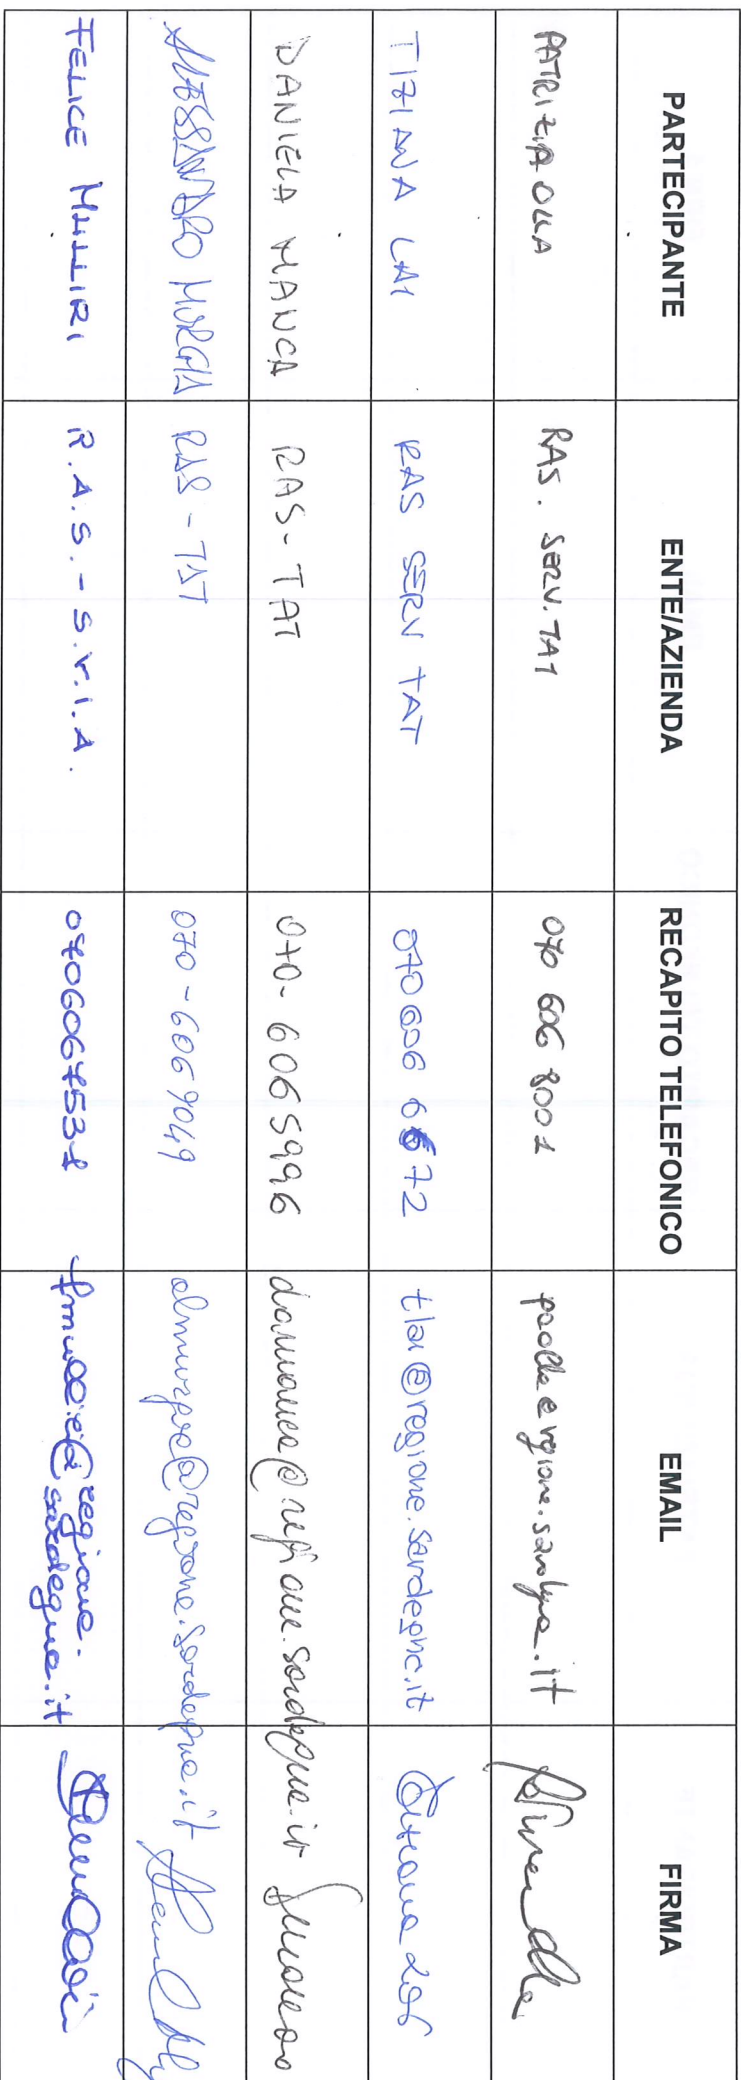 PARTECIPANTE ENTE/AZIENDA RECAPITO TELEFONICO EMAIL FIRMA
PATRIZIA OLLA RAS. SERV. TAT 070 606 8001 paolla@regione.sardegna.it
TIZIANA LAI RAS SERV TAT 070 606 6672 tlai@regione.sardegna.it Tiziana Lai
DANIELA MANCA RAS-TAT 070-6065996 damanca@regione.sardegna.it
ALESSANDRO MURGIA RAS-TAT 070-6069049 almurgia@regione.sardegna.it
FELICE MULLIRI R.A.S.-S.V.I.A. 0706067531 fmulliri@regione.
sardegna.it